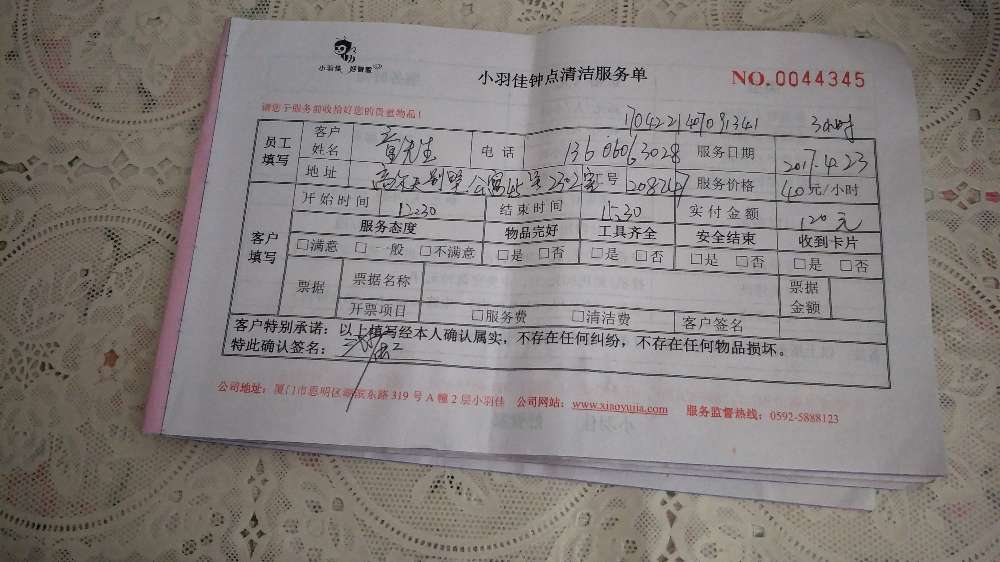 小羽佳 好管家
小羽佳钟点清洁服务单
NO.0044345
请您于服务前收拾好您的贵重物品！
170422140791341 3小时
员工填写 客户姓名 先生 电话 13606063028 服务日期 2017.4.23
地址 号 208247 服务价格 40元/小时
开始时间 12:30 结束时间 15:30 实付金额 120元
客户填写 服务态度 物品完好 工具齐全 安全结束 收到卡片
□满意 □一般 □不满意 □是 □否 □是 □否 □是 □否 □是 □否
票据 票据名称 票据金额
开票项目 □服务费 □清洁费 客户签名
客户特别承诺：以上填写经本人确认属实，不存在任何纠纷，不存在任何物品损坏。
特此确认签名：
公司地址：厦门市思明区湖滨东路319号A幢2层小羽佳 公司网站：www.xiaoyujia.com 服务监督热线：0592-5888123